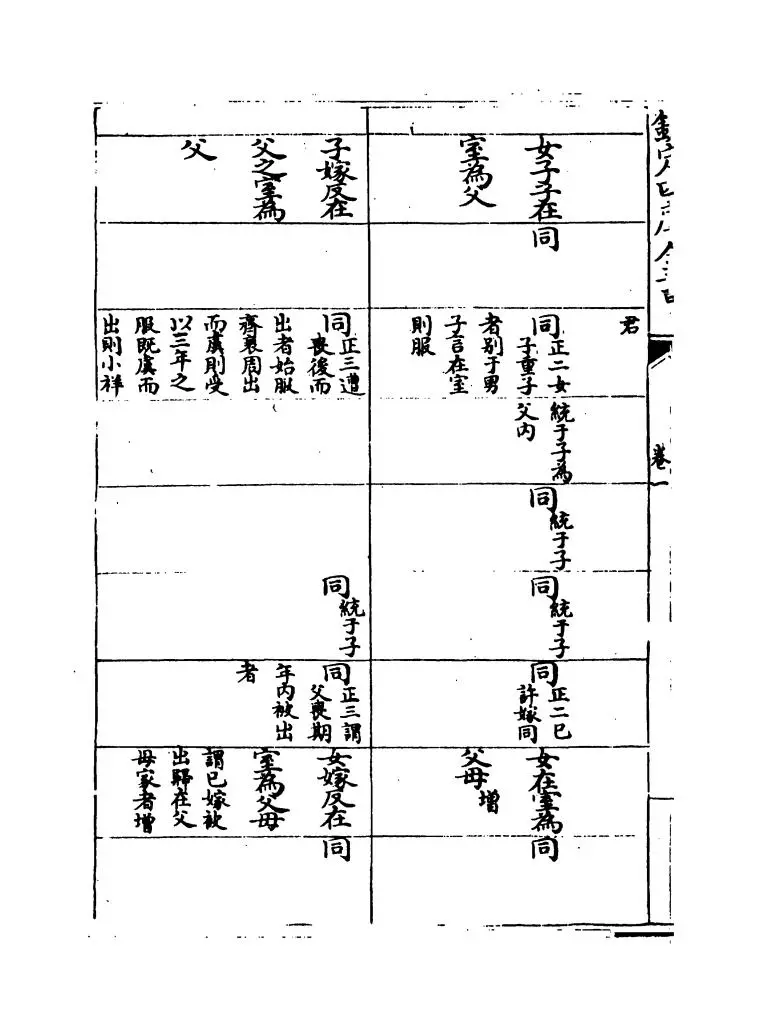 君
女子子在
室為父
同
同正二女
子童子
者别于男
子言在室
則服
統于子為
父内
同統于子
同統于子
同正二已
許嫁同
女在室為
父母增
同
子嫁反在
父之室為
父
同正三遭
喪後而
出者始服
齊衰周出
而虞則受
以三年之
服既虞而
出則小祥
同統于子
同正三謂
父喪期
年内被出
者
女嫁反在
室為父母
謂已嫁被
出歸在父
母家者增
同
卷一